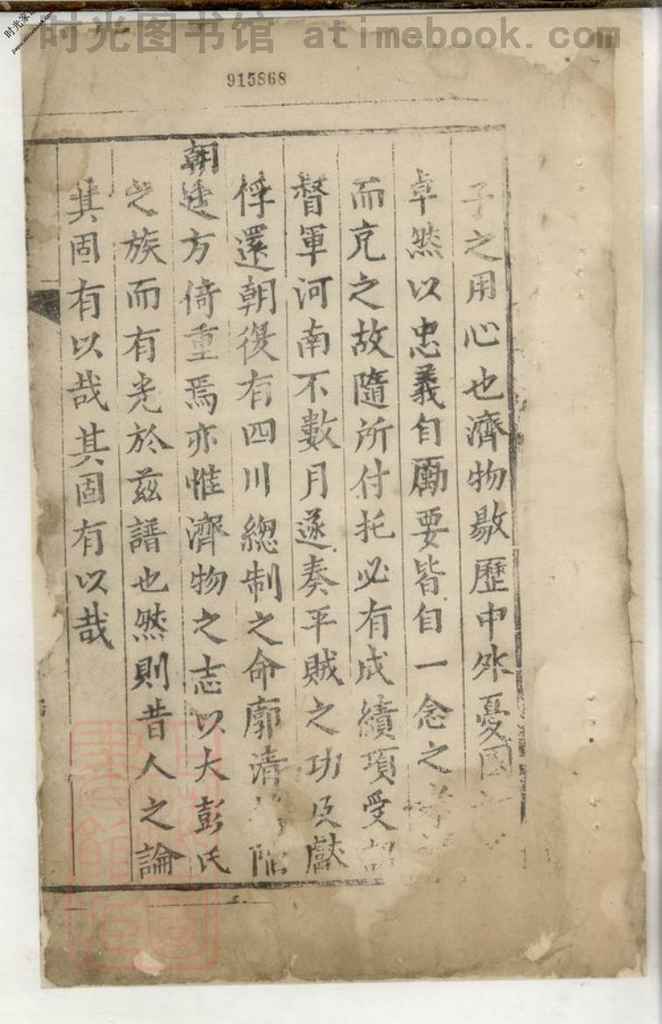 时光图书馆 atimebook.com
915868
子之用心也濟物敭歷中外憂國
卓然以忠義自勵要皆自一念之孝
而充之故隨所付托必有成績項受
督軍河南不數月遂奏平賊之功及獻
俘還朝復有四川總制之命廓清
朝廷方倚重焉亦惟濟物之志以大彭氏
之族而有光於茲譜也然則昔人之論
其固有以哉其固有以哉